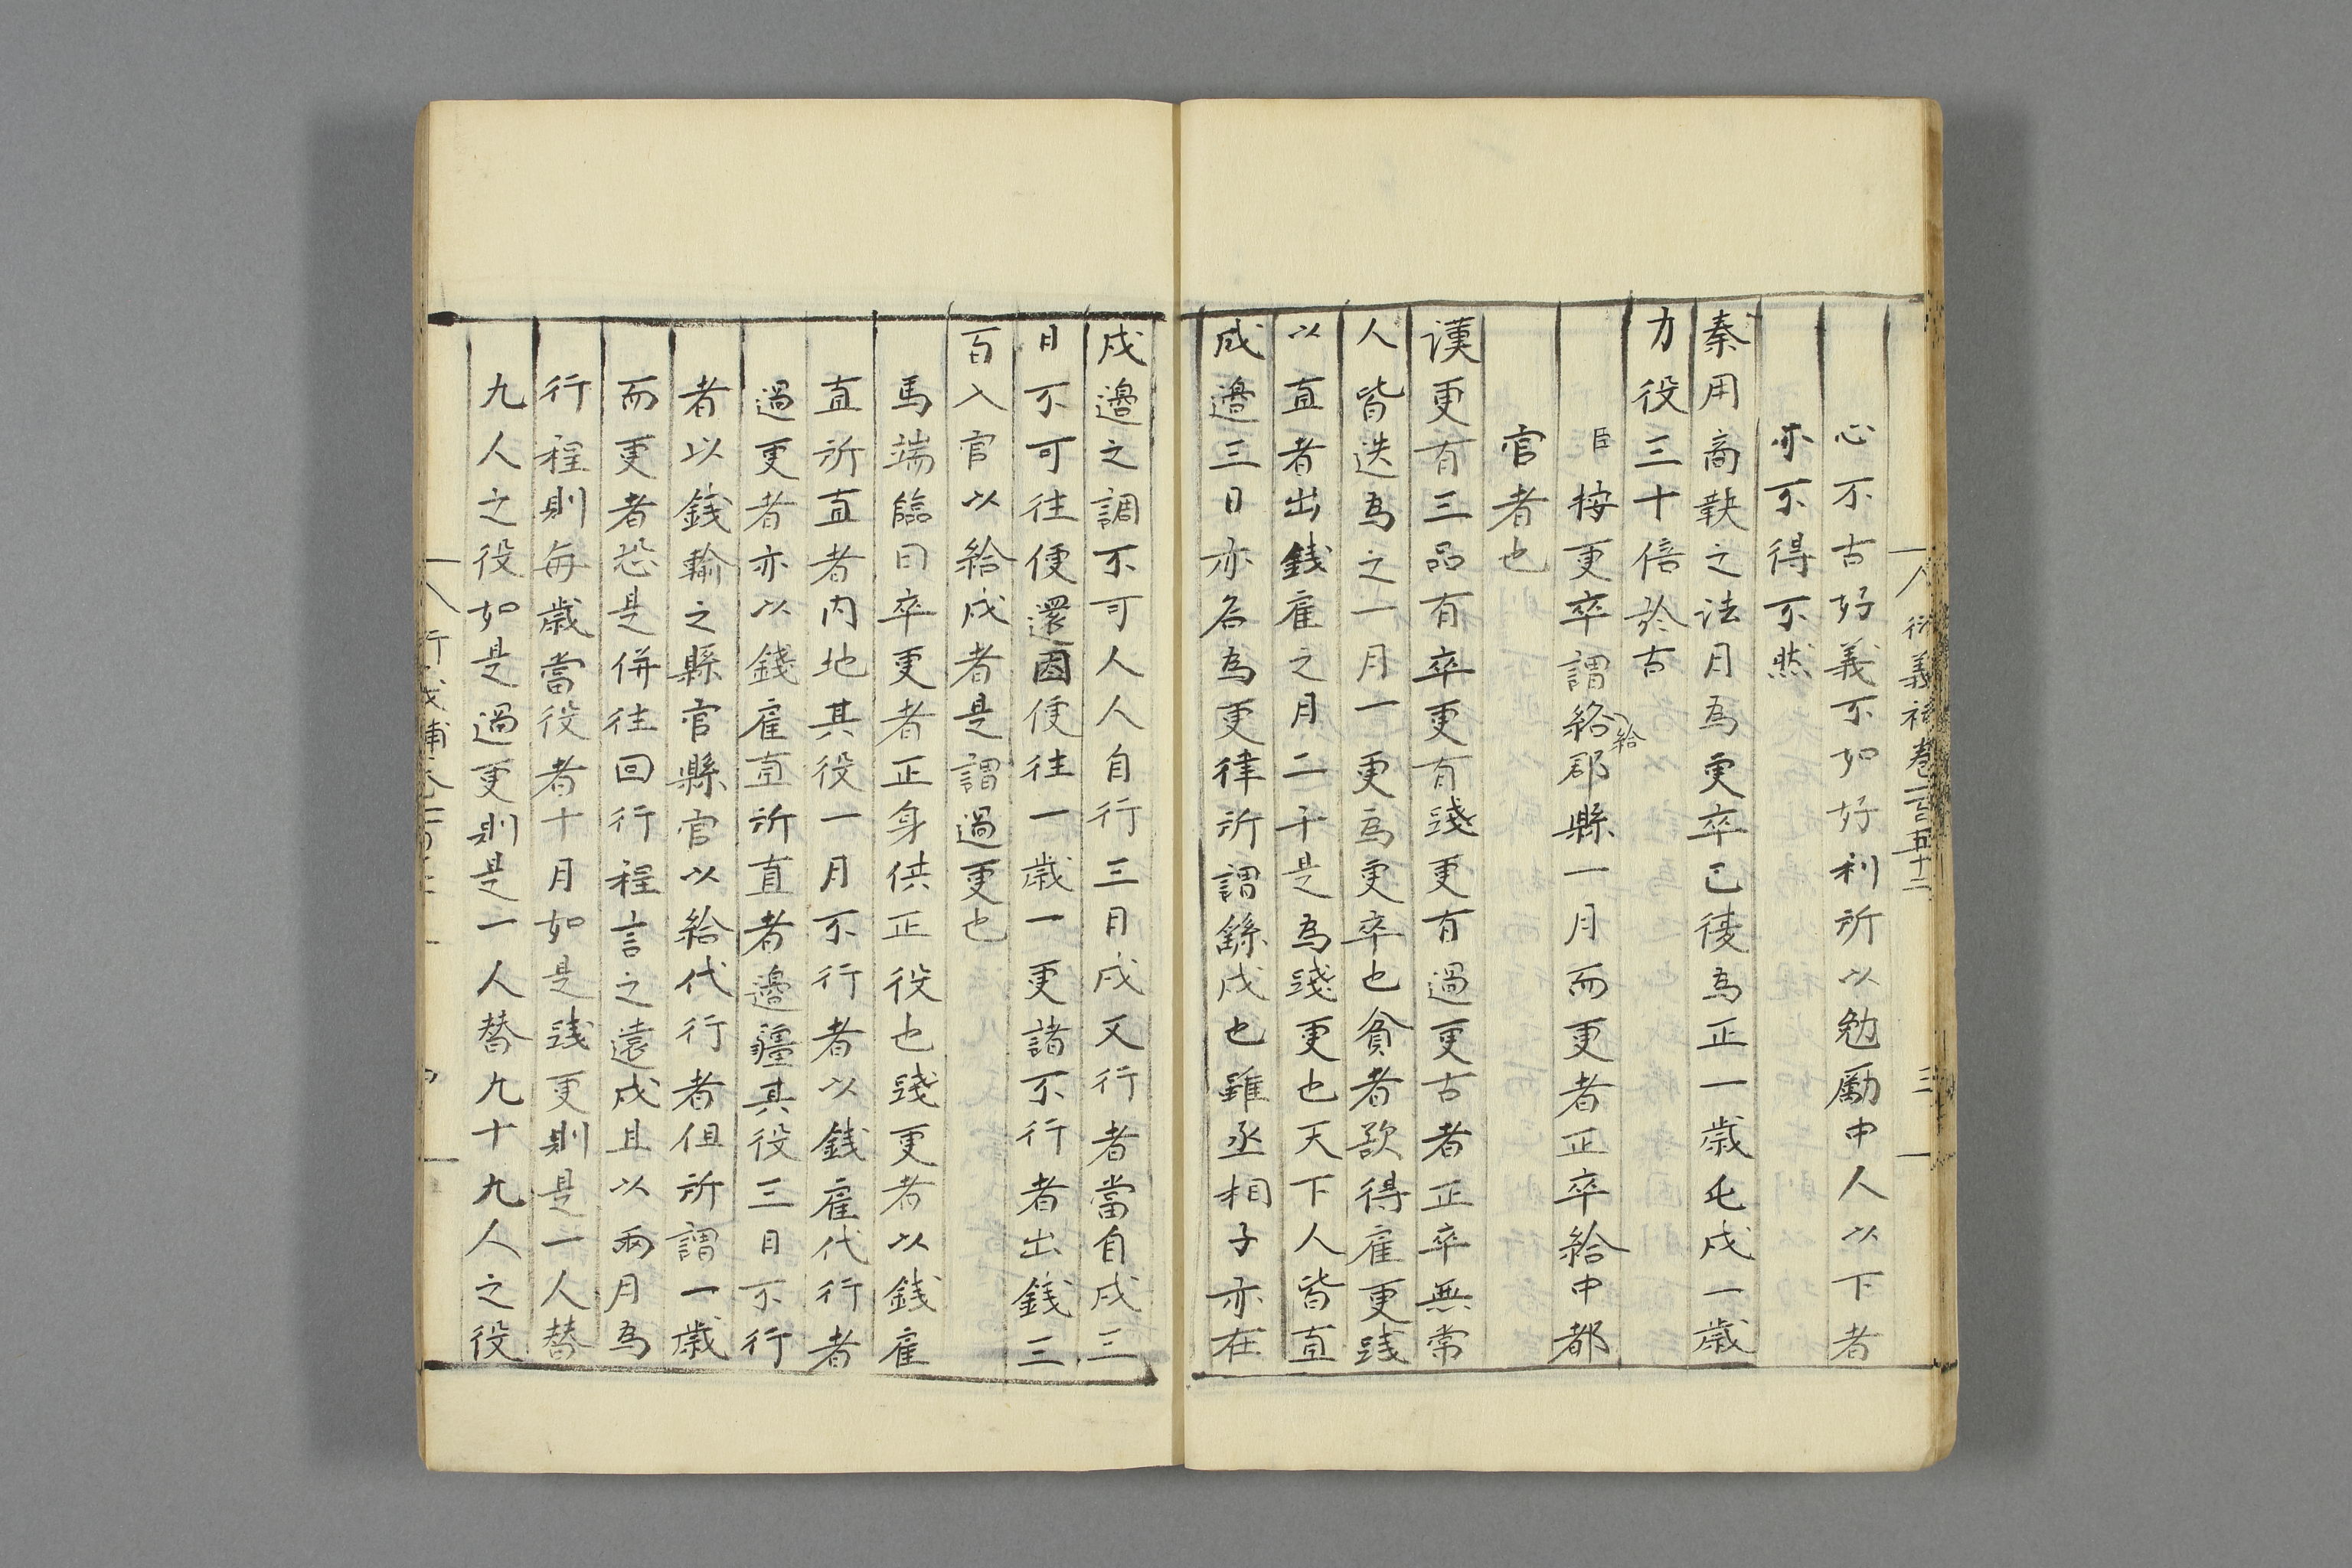 衍義補卷一百五十二 三
心不古好義不如好利所以勉勵中人以下者
亦不得不然
秦用商鞅之法月為更卒已復為正一歲屯戍一歲
力役三十倍於古
臣按更卒謂給郡縣一月而更者正卒給中都
給
官者也
漢更有三品有卒更有踐更有過更古者正卒無常
人皆迭為之一月一更為更卒也貧者欲得雇更踐
以直者出錢雇之月二千是為踐更也天下人皆直
戍邊三日亦名為更律所謂繇戍也雖丞相子亦在
戍邊之調不可人人自行三月戍又行者當自戍三
日不可往便還因便往一歲一更諸不行者出錢三
百入官以給戍者是謂過更也
馬端臨曰卒更者正身供正役也踐更者以錢雇
直所直者內地其役一月不行者以錢雇代行者
過更者亦以錢雇直所直者邊疆其役三日不行
者以錢輸之縣官縣官以給代行者但所謂一歲
而更者恐是併往回行程言之遠戍且以兩月為
行程則每歲當役者十月如是踐更則是一人替
九人之役如是過更則是一人替九十九人之役